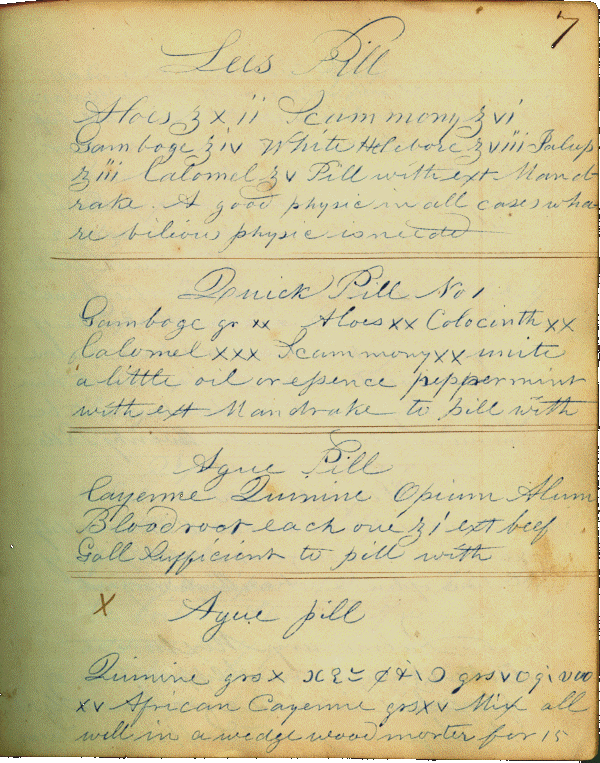 7
Lees Pill
Aloes ʒxii Scammony ʒvi
Gamboge ʒiv White Helebore ʒviii Jalup
ʒiii Calomel ʒv Pill with ext Mand-
rake. A good physic in all cases wha-
re bilious physic is needed
Quick Pill No 1
Gamboge gr xx Aloes xx Colocinth xx
Calomel xxx Scammony xx unite
a little oil or essence peppermint
with ext Mandrake to pill with
Ague Pill
Cayenne Quinine Opium Alum
Bloodroot each one ʒi ext beef
Gall Sufficient to pill with
X Ague pill
Quinine grs x grs v
xv African Cayenne grs xv Mix all
well in a wedge wood morter for 15